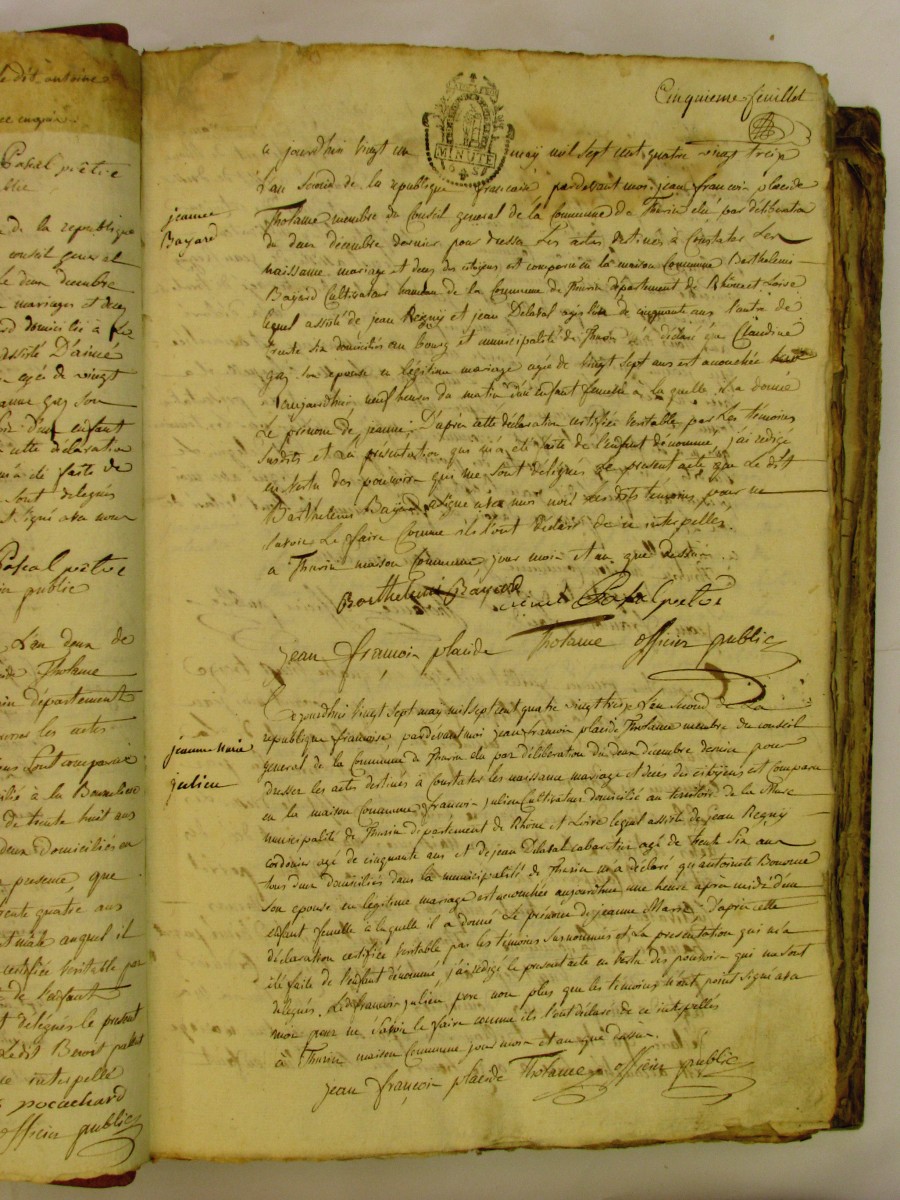 le dit antoine
Pascal prêtre
de la republique
conseil general
le deux decembre
mariages et deces
domiciliés à
assisté D'aimé
agé de vingt
gay son
d'un enfant
cette déclaration
m'a été faite de
sont delegués
signé avec nous
Pascal prêtre
public
L'an deux de
Tholame
département
les actes
sont comparu
à la
de trente huit ans
deux Domiciliés en
presence, que
trente quatre ans
male auquel il
certifiée veritable par
de l'enfant
delégués le present
Ledit Benoit
interpellé
pocachard
officier public
Cinquieme feuillet
MINUTE
ce jourdhui vingt un may mil sept cent quatre vingt treize
L'an second de la republique francaise pardevant moi jean françois placide
jeanne
Bayard
Tholame membre du Conseil general de la Commune de Thurin elu par déliberation
du deux décembre dernier pour dresser Les actes destinés à Constater Les
naissance mariage et deces des citoyens est comparu en la maison Commune Barthelemi
Bayard Cultivateur hameau de la Commune de Thurin département de Rhône et Loire
lequel assisté de jean Regny et jean Delaval agés l'un de cinquante ans l'autre de
trente six domiciliés au bourg et municipalité de Thurin m'a déclaré que Claudine
gay son epouse en légitime mariage agée de vingt sept ans est accouchée
aujourdhui neuf heures du matin d'un enfant femelle à laquelle il a donné
Le prénom de jeanne; D'après cette déclaration certifiée veritable par Les témoins
susdits et La présentation qui m'a été faite de l'enfant dénommé, j'ai redigé
en vertu des pouvoirs qui me sont delegués le present acte que Le dit
Barthelemi Bayard a signé avec moi non les dits témoins pour ne
savoir Le faire Comme ils l'ont déclaré de ce interpellés.
a Thurin maison Commune, jour mois et an que dessus.
Barthelemi Bayard Pascal pretre
jean françois placide Tholame officier public
Cejourdhui vingt sept may mil sept cent quatre vingt treize L'an second de La
republique françoise, pardevant moi jean françois placide Tholame membre du conseil
jeanne marie
julien
general de la Commune de Thurin elu par déliberation du deux decembre dernier pour
dresser les actes destinés à Constater les naissance mariage et deces des citoyens est Comparu
en la maison Commune françois julien Cultivateur domicilié au territoire de la
municipalité de Thurin département de Rhône et Loire lequel assisté de jean Regny
cordonier agé de cinquante ans et de jean Delaval cabaretier agé de trente six ans
tous deux domiciliés dans la municipalité de Thurin m'a déclaré qu'antoinete
son epouse en légitime mariage est accouchée aujourdhui une heure après midi d'un
enfant femelle à laquelle il a donné Le prénom de jeanne Marie; d'après cette
déclaration certifiée veritable par les témoins surnommés et La presentation qui m'a
été faite de l'enfant dénommé, j'ai redigé le present acte en vertu des pouvoirs qui me sont
délegués. Ledit françois julien pere non plus que les témoins n'ont point signé avec
moi pour ne savoir le faire comme ils l'ont déclaré de ce interpellés
à Thurin maison Commune jour mois et an que dessus.
jean françois placide Tholame officier public